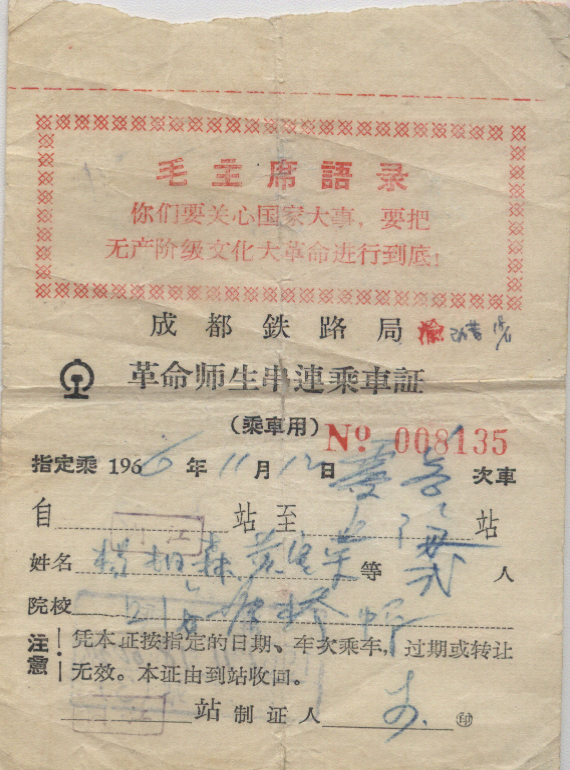 毛主席語录
你们要关心国家大事,要把
无产阶级文化大革命进行到底!
成都鉄路局
革命师生串連乘車証
(乘車用)
№ 008135
指定乘 1966 年 11 月 12 日 次車
自 站至 站
姓名 楊柏森 等 人
院校
注意! 凭本证按指定的日期、车次乘车,过期或转让
无效。本证由到站收回。
站 制证人 印